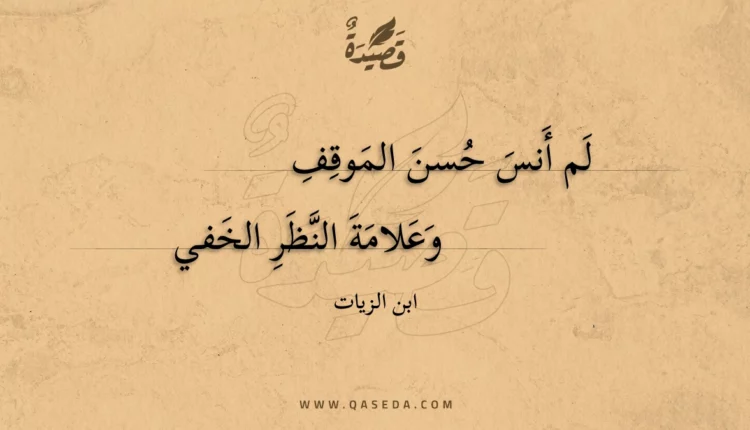 قَصِيدَةٌ
لَم أَنسَ حُسنَ المَوقِفِ
وَعَلامَةَ النَّظَرِ الخَفي
ابن الزيات
WWW.QASEDA.COM